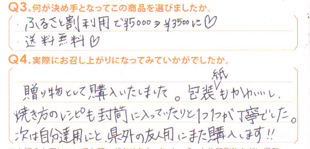 Q3.何が決め手となってこの商品を選びましたか。
・ふるさと割利用で¥5000→¥3500に♡
・送料無料♡
Q4.実際にお召し上がりになってみていかがでしたか。
贈り物として購入いたしました。包装紙もかわいいし、
焼き方のレシピも封筒に入っていたりと1つ1つが丁寧でした。
次は自分達用にと県外の友人用にまた購入します!!